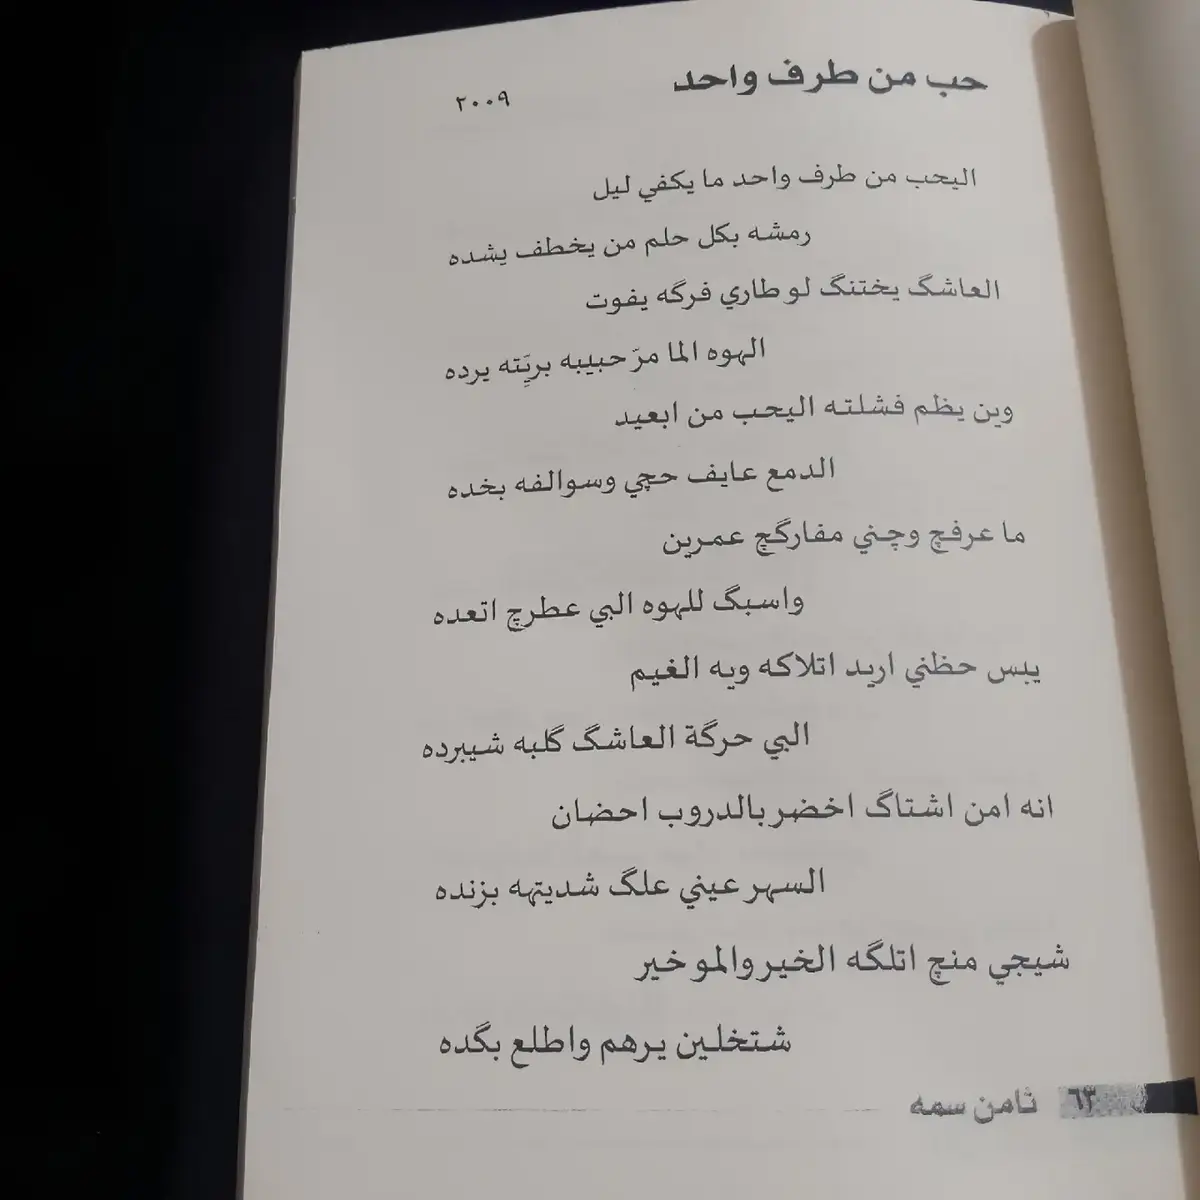 حب من طرف واحد
٢٠٠٩
اليحب من طرف واحد ما يكفي ليل
رمشه بكل حلم من يخطف يشده
العاشگ يختنگ لو طاري فرگه يفوت
الهوه الما مرّ حبيبه بريَِته يرده
وين يظم فشلته اليحب من ابعيد
الدمع عايف حچي وسوالفه بخده
ما عرفچ وچني مفارگچ عمرين
واسبگ للهوه البي عطرچ اتعده
يبس حظني اريد اتلاكه ويه الغيم
البي حرگة العاشگ گلبه شيبرده
انه امن اشتاگ اخضر بالدروب احضان
السهر عيني علگ شديتهه بزنده
شيجي منچ اتلگه الخير والمو خير
شتخلين يرهم واطلع بگده
ثامن سمه ٦٣